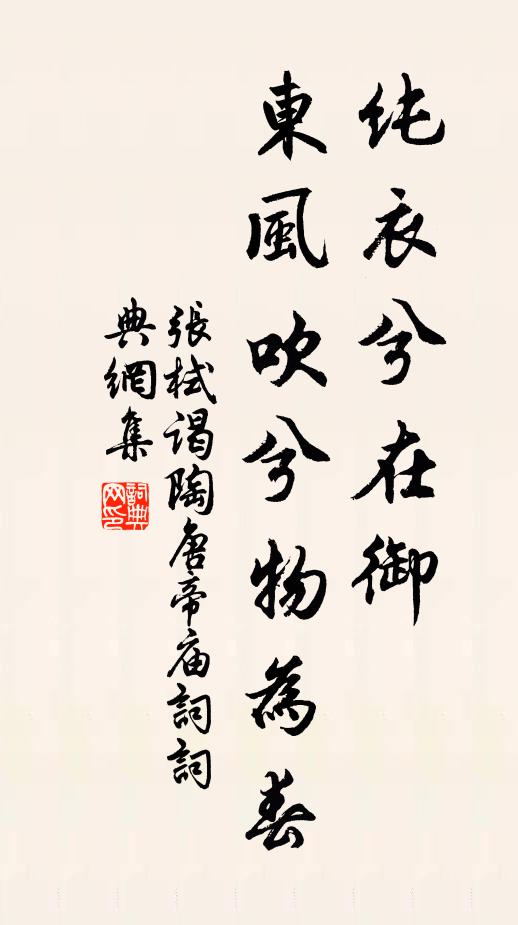 纯衣兮在御
東風吹兮物為春
張栻谒陶唐帝庙詞詞
典網集
詞典
网印